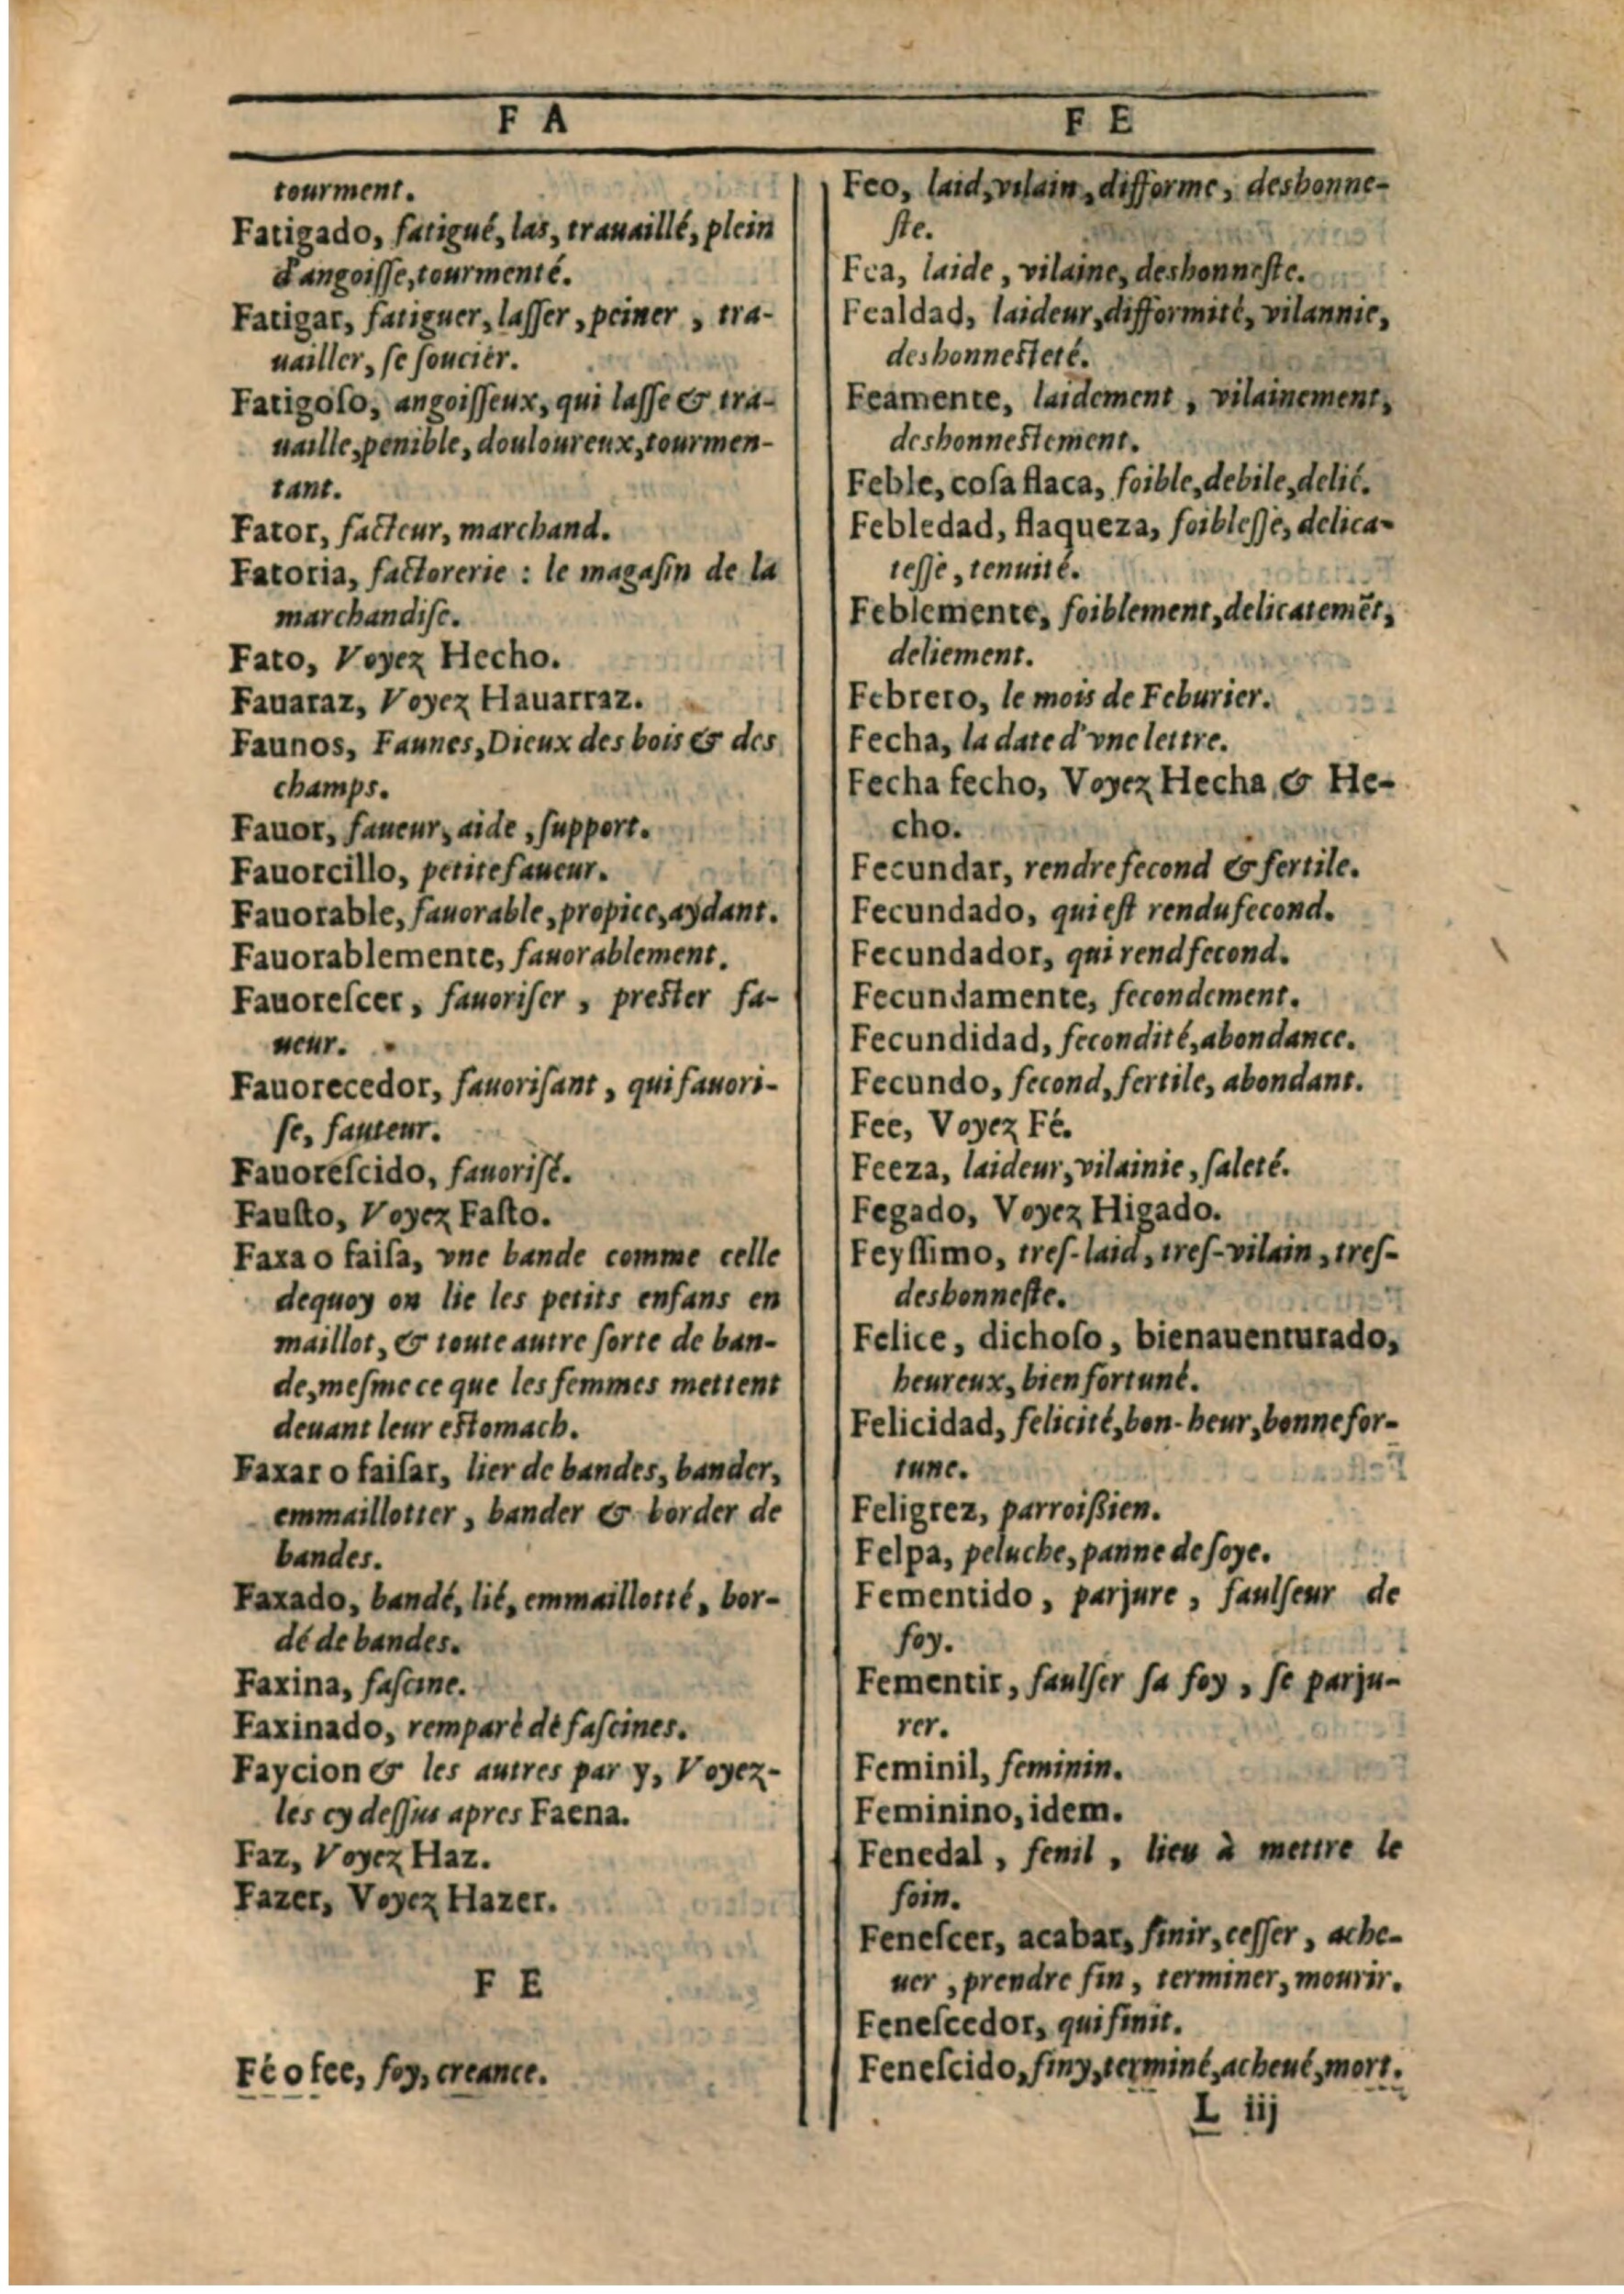 F A
tourment.
Fatigado, fatigué, las, trauaillé, plein
d'angoiſſe, tourmenté.
Fatigar, fatiguer, laſſer, peiner, tra-
uailler, ſe ſoucier.
Fatigoſo, angoiſſeux, qui laſſe & tra-
uaille, penible, douloureux, tourmen-
tant.
Fator, facteur, marchand.
Fatoria, factorerie : le magaſin de la
marchandiſe.
Fato, Voyez Hecho.
Fauaraz, Voyez Hauarraz.
Faunos, Faunes, Dieux des bois & des
champs.
Fauor, faueur, aide, ſupport.
Fauorcillo, petite faueur.
Fauorable, fauorable, propice, aydant.
Fauorablemente, fauorablement.
Fauoreſcer, fauoriſer, preſter fa-
ueur.
Fauorecedor, fauoriſant, qui fauori-
ſe, fauteur.
Fauoreſcido, fauoriſé.
Fauſto, Voyez Faſto.
Faxa o faiſa, vne bande comme celle
dequoy on lie les petits enfans en
maillot, & toute autre ſorte de ban-
de, meſme ce que les femmes mettent
deuant leur eſtomach.
Faxar o faiſar, lier de bandes, bander,
emmaillotter, bander & border de
bandes.
Faxado, bandé, lié, emmaillotté, bor-
dé de bandes.
Faxina, faſcine.
Faxinado, remparé de faſcines.
Faycion & les autres par y, Voyez-
les cy deſſus apres Faena.
Faz, Voyez Haz.
Fazer, Voyez Hazer.
F E
Fé o fee, foy, creance.
F E
Feo, laid, vilain, difforme, deshonne-
ſte.
Fea, laide, vilaine, deshonneſte.
Fealdad, laideur, difformité, vilannie,
deshonneſteté.
Feamente, laidement, vilainement,
deshonneſtement.
Feble, coſa flaca, foible, debile, delié.
Febledad, flaqueza, foibleſſe, delica-
teſſe, tenuité.
Feblemente, foiblement, delicatemẽt,
deliement.
Febrero, le mois de Feburier.
Fecha, la date d'vne lettre.
Fecha fecho, Voyez Hecha & He-
cho.
Fecundar, rendre fecond & fertile.
Fecundado, qui eſt rendu fecond.
Fecundador, qui rend fecond.
Fecundamente, fecondement.
Fecundidad, fecondité, abondance.
Fecundo, fecond, fertile, abondant.
Fee, Voyez Fé.
Feeza, laideur, vilainie, ſaleté.
Fegado, Voyez Higado.
Feyſſimo, treſ-laid, treſ-vilain, treſ-
deshonneſte.
Felice, dichoſo, bienauenturado,
heureux, bien fortuné.
Felicidad, felicité, bon-heur, bonne for-
tune.
Feligrez, parroißien.
Felpa, peluche, panne de ſoye.
Fementido, parjure, faulſeur de
foy.
Fementir, faulſer ſa foy, ſe parju-
rer.
Feminil, feminin.
Feminino, idem.
Fenedal, fenil, lieu à mettre le
foin.
Feneſcer, acabar, finir, ceſſer, ache-
uer, prendre fin, terminer, mourir.
Feneſcedor, qui finit.
Feneſcido, finy, terminé, acheué, mort.
L iij